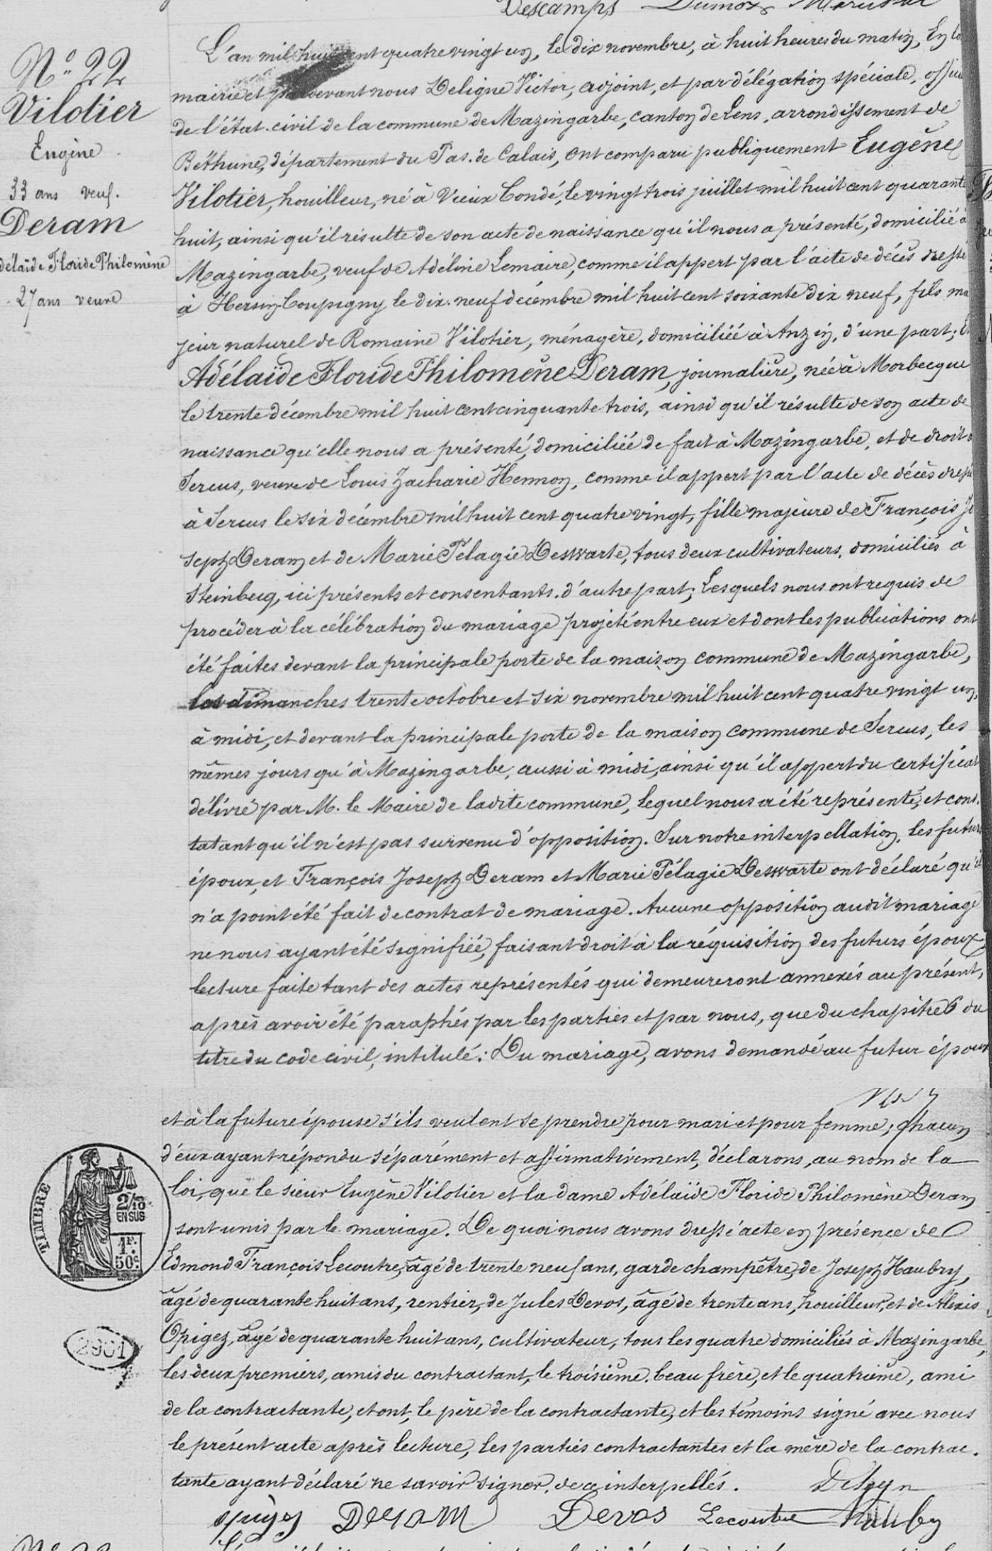 Descamps Dumox
N° 22
Vilotier
Eugène
33 ans veuf.
Deram
délaïde Floride Philomène
27 ans veuve
L'an mil huit cent quatre vingt un, le dix novembre, à huit heures du matin, En la
mairie et par devant nous Deligne Victor, adjoint, et par délégation spéciale, offici
de l'état-civil de la commune de Mazingarbe, canton de Lens, arrondissement de
Béthune, département du Pas-de-Calais, ont comparu publiquement Eugène
Vilotier, houilleur, né à Vieux Condé, le vingt trois juillet mil huit cent quarante
huit, ainsi qu'il résulte de son acte de naissance qu'il nous a présenté, domicilié à
Mazingarbe, veuf de Adéline Lemaire, comme il appert par l'acte de décès dressé
à Hersin-Coupigny le dix neuf décembre mil huit cent soixante dix neuf, fils ma
jeur naturel de Romaine Vilotier, ménagère, domiciliée à Anzin, d'une part; Et
Adélaïde Floride Philomène Deram, journalière, née à Morbecque
le trente décembre mil huit cent cinquante trois, ainsi qu'il résulte de son acte de
naissance qu'elle nous a présenté, domiciliée de fait à Mazingarbe, et de droit à
Sercus, veuve de Louis Zacharie Hennon, comme il appert par l'acte de décès dressé
à Sercus le six décembre mil huit cent quatre vingt, fille majeure de François Jo
seph Deram et de Marie Pélagie Deswarte, tous deux cultivateurs, domiciliés à
Steinbecq, ici présents et consentants. d'autre part; Lesquels nous ont requis de
procéder à la célébration du mariage projeté entre eux et dont les publications ont
été faites devant la principale porte de la maison commune de Mazingarbe,
les dimanches trente octobre et six novembre mil huit cent quatre vingt un,
à midi, et devant la principale porte de la maison commune de Sercus, les
mêmes jours qu'à Mazingarbe, aussi à midi, ainsi qu'il appert du certificat
délivré par M. le Maire de ladite commune, lequel nous a été représenté, et cons
tatant qu'il n'est pas survenu d'opposition. Sur notre interpellation, les futurs
époux et François Joseph Deram et Marie Pélagie Deswarte ont déclaré qu'il
n'a point été fait de contrat de mariage. Aucune opposition audit mariage
ne nous ayant été signifiée, faisant droit à la réquisition des futurs époux,
lecture faite tant des actes représentés qui demeureront annexés au présent,
après avoir été paraphés par les parties et par nous, que du chapitre 6 du
titre du code civil, intitulé: Du mariage, avons demandé au futur époux
et à la future épouse s'ils veulent se prendre pour mari et pour femme; chacun
d'eux ayant répondu séparément et affirmativement, déclarons, au nom de la
loi, que le sieur Eugène Vilotier et la dame Adélaïde Floride Philomène Deram
sont unis par le mariage. De quoi nous avons dressé acte en présence de
Edmond François Lecoutre, âgé de trente neuf ans, garde champêtre, de Joseph Haubry,
âgé de quarante huit ans, rentier, de Jules Devos, âgé de trente ans, houilleur, et de Alexis
Opigez, âgé de quarante huit ans, cultivateur, tous les quatre domiciliés à Mazingarbe,
les deux premiers, amis du contractant, le troisième beau frère, et le quatrième, ami
de la contractante, et ont, le père de la contractante, et les témoins signé avec nous
le présent acte après lecture, les parties contractantes et la mère de la contrac.
tante ayant déclaré ne savoir signer, de ce interpellés.
TIMBRE
2/10
EN SUS
1F.
50c.
2901
Deram Devos Lecoutre